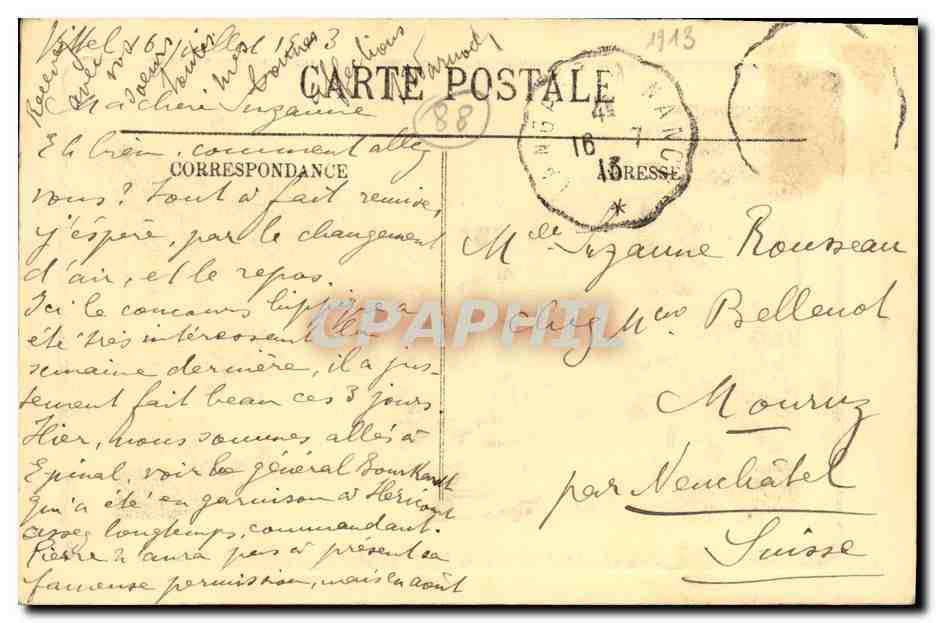 Vittel 16 juillet 1913
1913
Recevez
avec vos
soeurs
toutes
mes
bonnes
affections
CARTE POSTALE
Ma chère Suzanne
88
NANC
4
16 7
13
*
CORRESPONDANCE
ADRESSE
Eh bien, comment allez
vous? Tout à fait remise,
j'éspère, par le changement
d'air, et le repos.
Ici le concours hippique a
été très intéressant la
semaine dernière, il a jus-
tement fait beau ces 3 jours.
Hier, nous sommes allés à
Epinal, voir le général Bourkardt
qui a été en garnison à Héricourt
assez longtemps, commandant.
Pierre n'aura pas à présent sa
fameuse permission, mais en août
Melle Suzanne Rousseau
chez Mme Bellenot
Mouruz
par Neuchâtel
Suisse
CPAPHIL